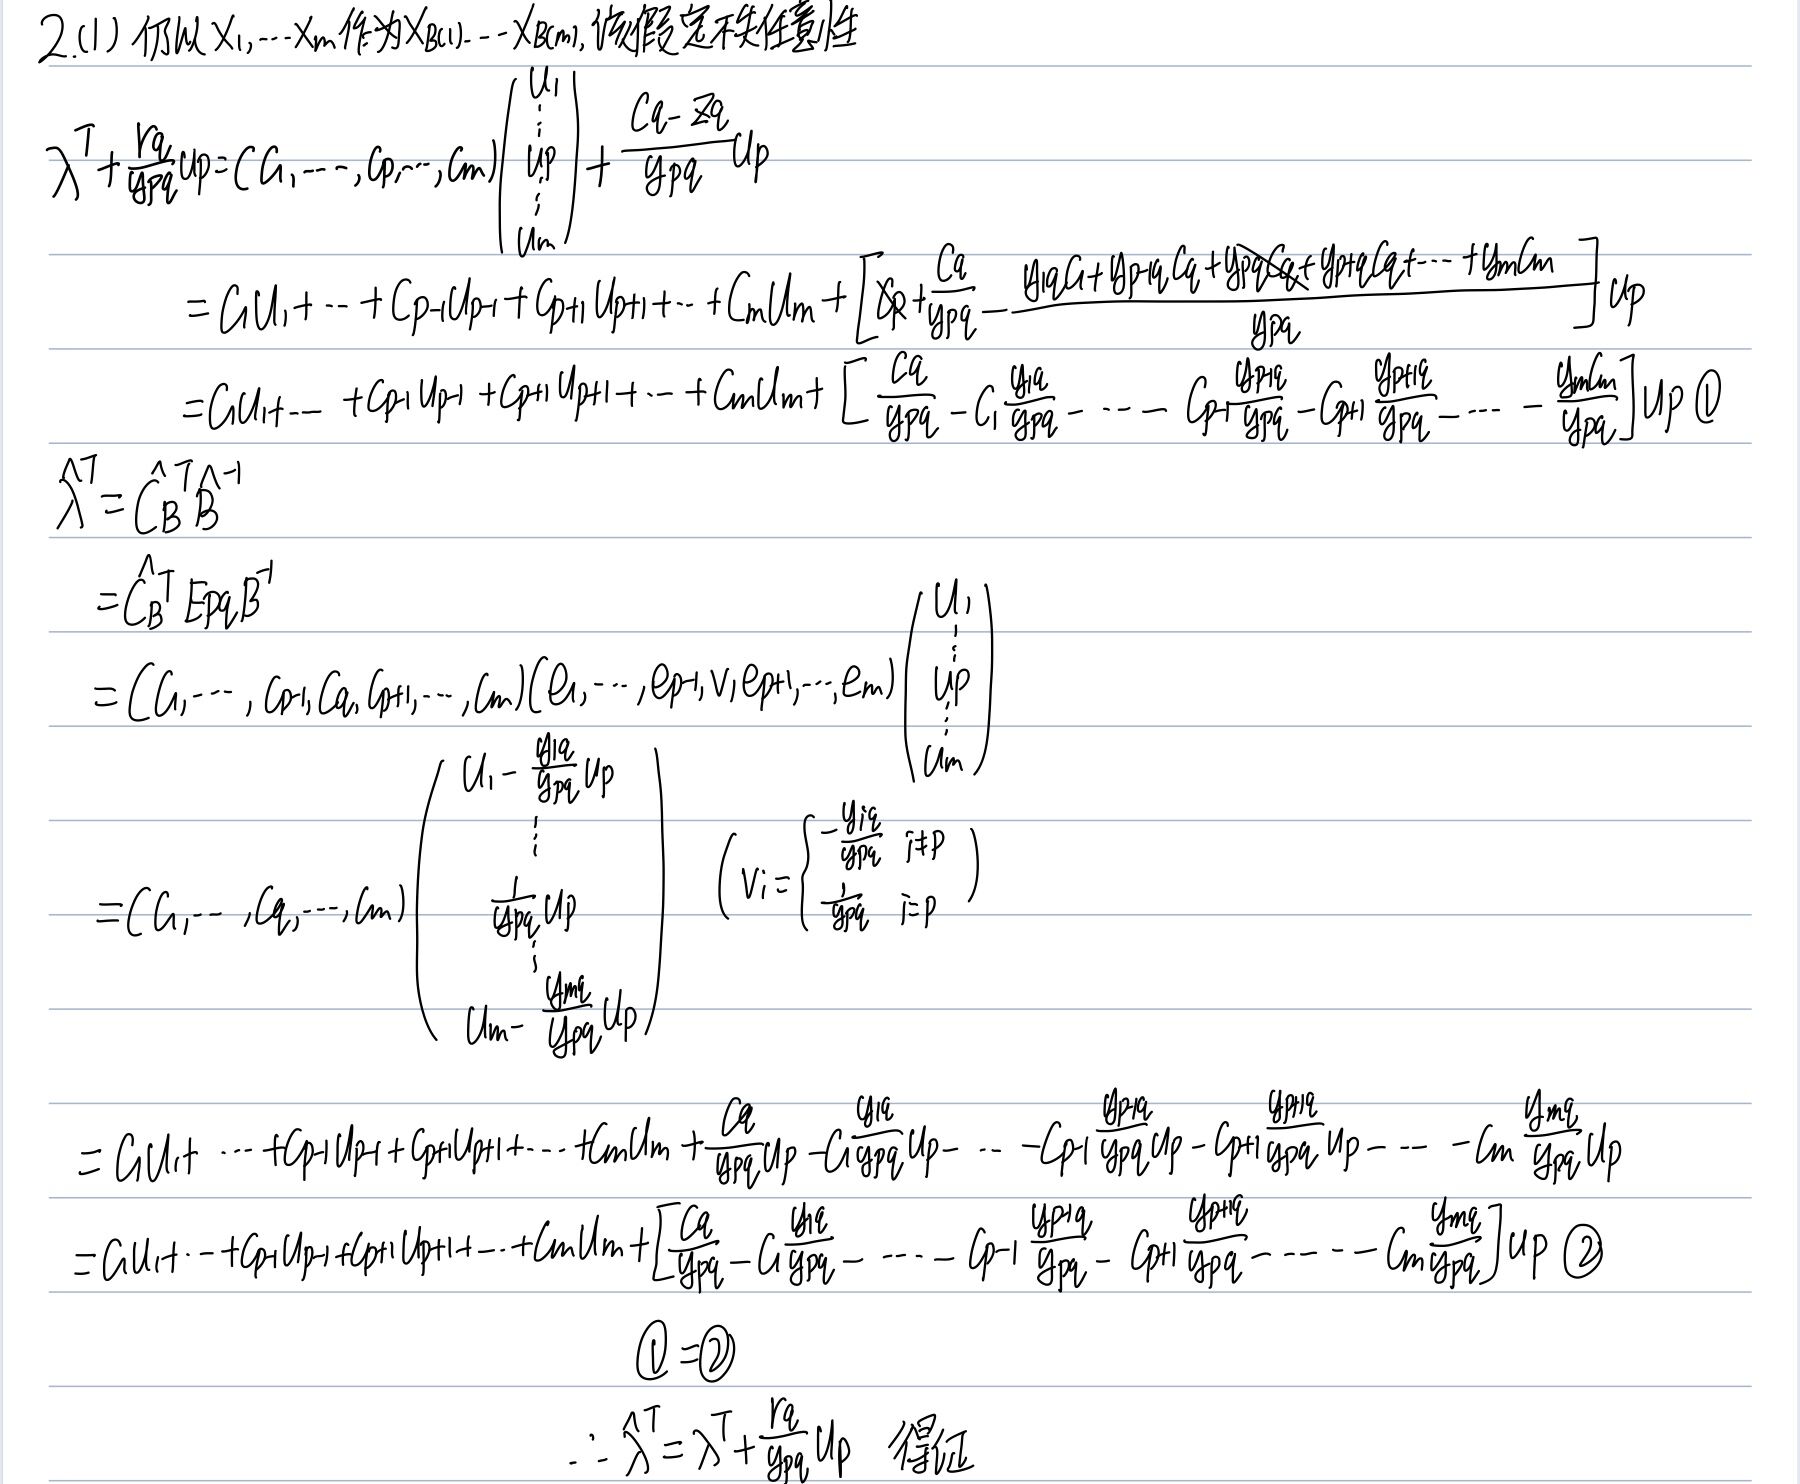 2.(1) 仍以 X₁,…Xm 作为 X_B(1)…X_B(m), 该假定不失任意性
λ^T + (rq/ypq) Up = (C₁,…,Cp,…,Cm) (U₁ ⋮ Up ⋮ Um) + ((Cq - Zq)/ypq) Up
= C₁U₁ + … + Cp-1Up-1 + Cp+1Up+1 + … + CmUm + [Cp + Cq/ypq - (y1qC₁ + yp-1qCq + ypqCq + yp+1qCq + … + ymCm)/ypq] Up
= C₁U₁ + … + Cp-1Up-1 + Cp+1Up+1 + … + CmUm + [Cq/ypq - C₁ y1q/ypq - … - Cp-1 yp-1q/ypq - Cp+1 yp+1q/ypq - … - ymCm/ypq] Up ①
λ̂^T = Ĉ_B^T B̂^-1
= Ĉ_B^T Epq B^-1
= (C₁,…,Cp-1,Cq,Cp+1,…,Cm)(e₁,…,ep-1,v,ep+1,…,em) (U₁ ⋮ Up ⋮ Um)
= (C₁,…,Cq,…,Cm) (U₁ - (y1q/ypq) Up ⋮ (1/ypq) Up ⋮ Um - (ymq/ypq) Up) (Vi = { -yiq/ypq i≠p 1/ypq i=p )
= C₁U₁ + … + Cp-1Up-1 + Cp+1Up+1 + … + CmUm + (Cq/ypq) Up - C₁ (y1q/ypq) Up - … - Cp-1 (yp-1q/ypq) Up - Cp+1 (yp+1q/ypq) Up - … - Cm (ymq/ypq) Up
= C₁U₁ + … + Cp-1Up-1 + Cp+1Up+1 + … + CmUm + [Cq/ypq - C₁ y1q/ypq - … - Cp-1 yp-1q/ypq - Cp+1 yp+1q/ypq - … - Cm ymq/ypq] Up ②
① = ②
∴ λ̂^T = λ^T + (rq/ypq) Up 得证